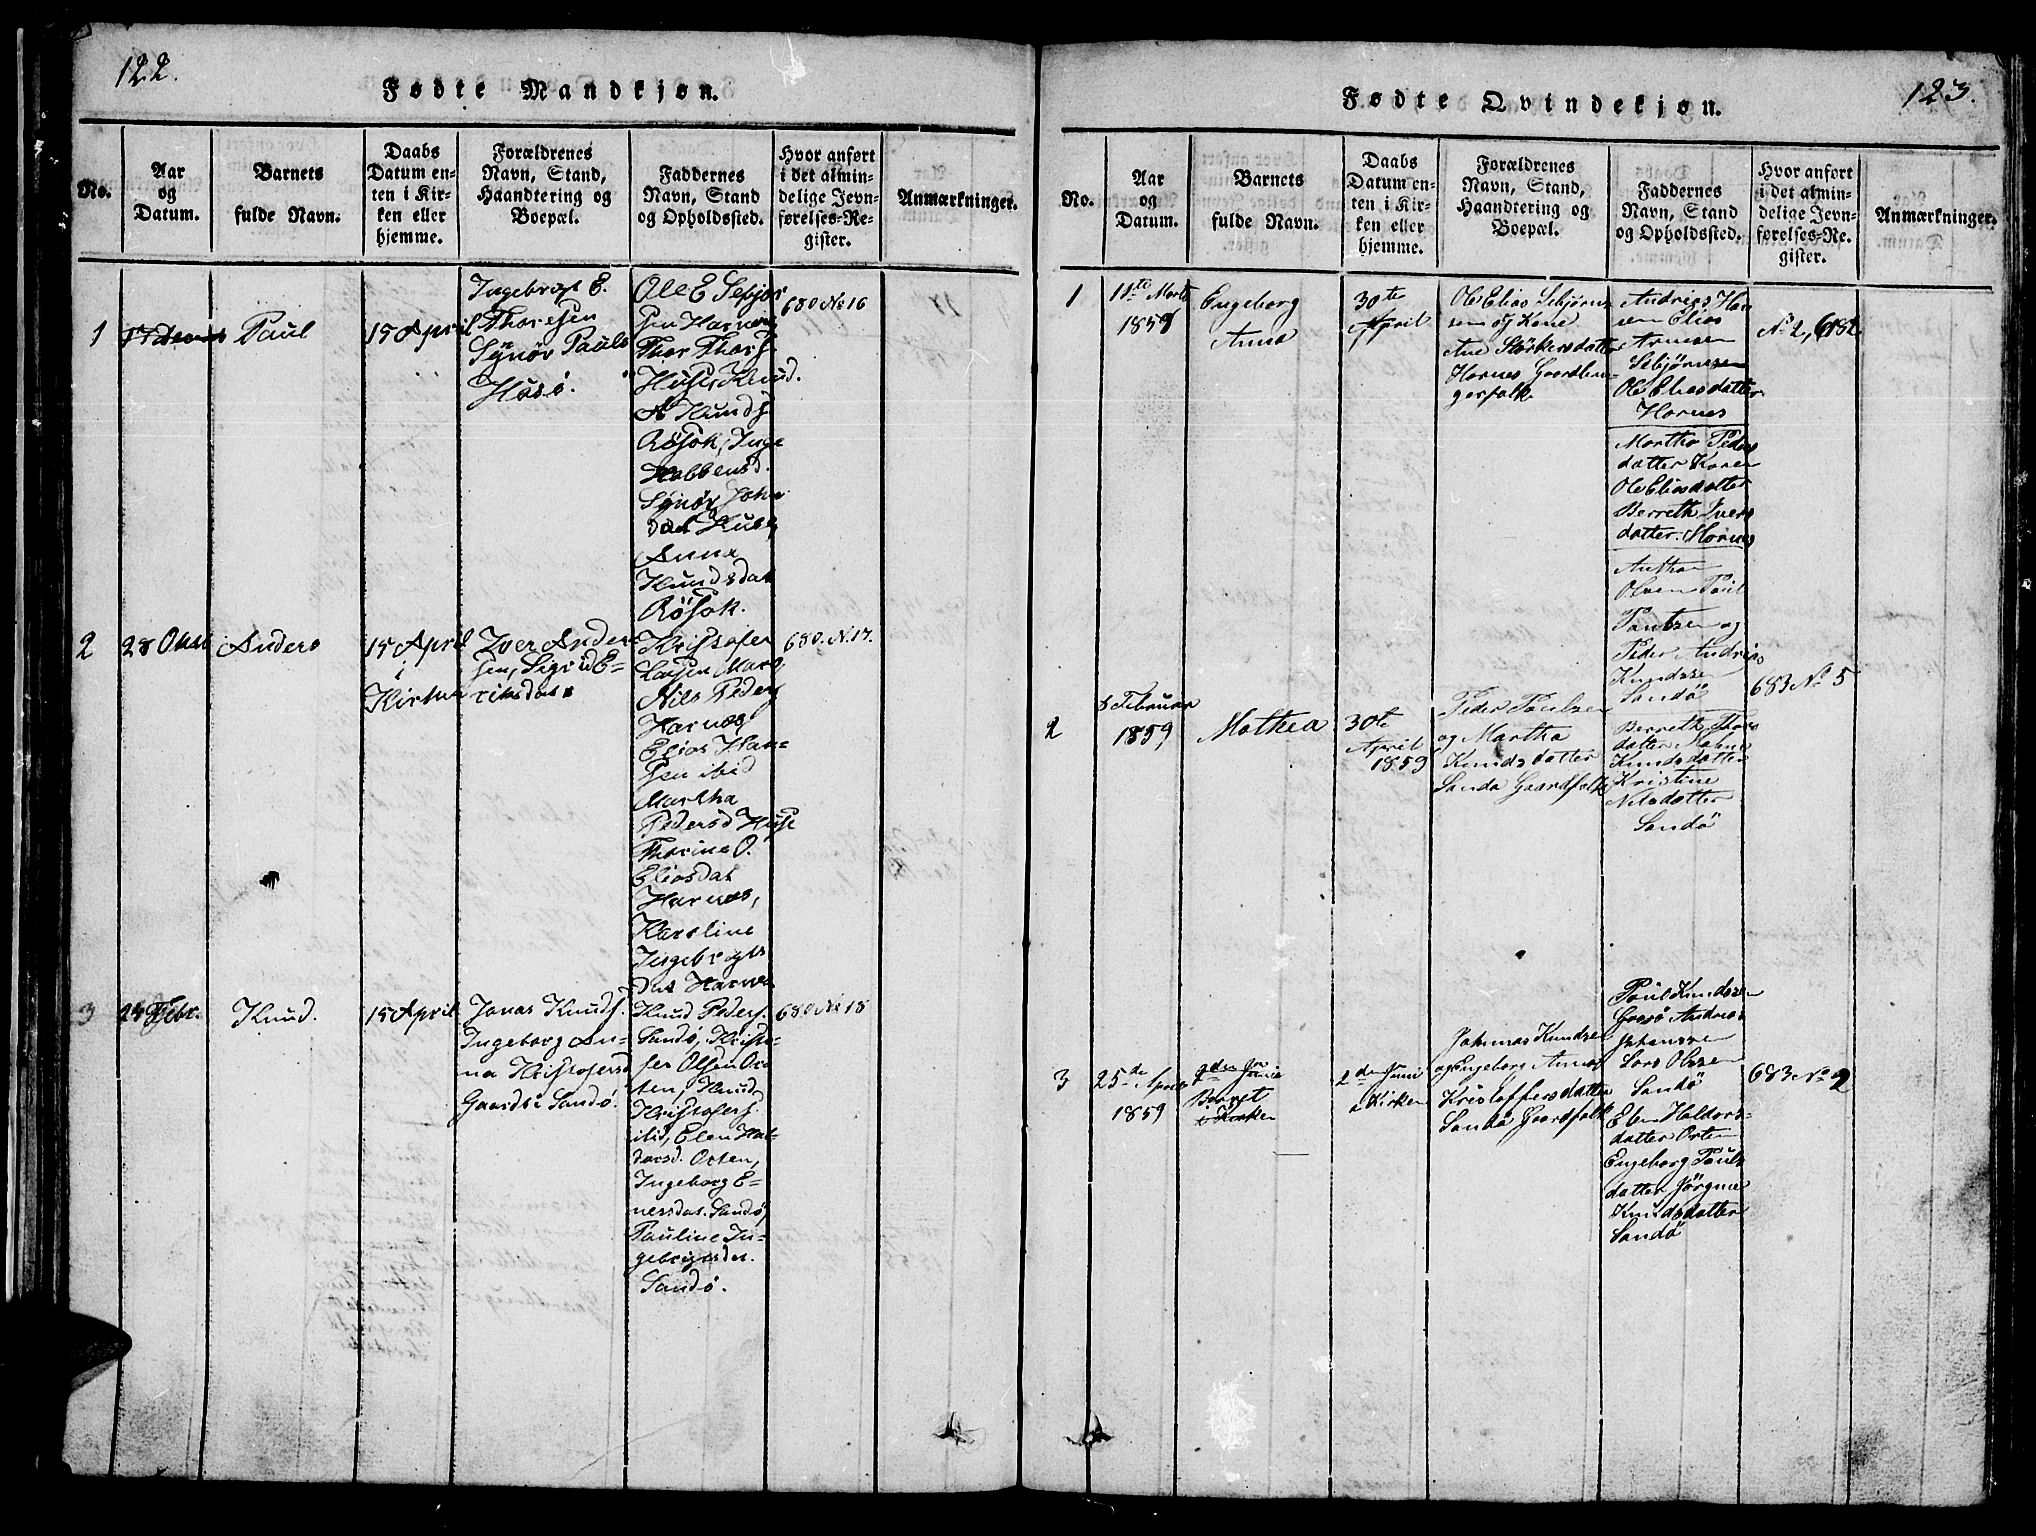 122.
Fødte Mandkjøn.
No.
Aar
og
Datum.
Barnets
fulde Navn.
Daabs
Datum en-
ten i Kir-
ken eller
hjemme.
Forældrenes
Navn, Stand,
Haandtering og
Boepæl.
Faddernes
Navn, Stand
og Opholdssted.
Hvor anført
i det almin-
delige Jevn-
førelses-Re-
gister.
Anmærkninger.
1
Paul
15 April
Ingebrigt E.
Thoresen
Synør Pauls
Husø.
Ole E Sebjør
sen Harnes
Thor Thors.
Huse, Knud
A Knuds.
Røsok, Inge
Habbensd.
Synør John
dat Huse,
Anna
Knudsdat
Røsok.
680 No 16
2
Anders
15 April
i
Kirken
Iver Ander
sen, Sigrid E-
riksdat
Kristofer
Nils Peders
Harnes
Elias Han-
sen ibid
Martha
Pedersd Huse
Thorine O.
Eliasdat
Harnes,
Karoline
Ingebrigts
Dat Harnes
680. N. 17.
3
25 Febr.
Knud.
15 April
Jonas Knuds.
Ingeborg An-
na Kristofersd
Gaardbr Sandø.
Knud Peders.
Sandø, Kristo-
fer Olsen Or-
ten, Knud
Kristofers.
ibid, Elen Hal-
dorsd. Orten,
Ingeborg E-
nersdat. Sandø,
Pauline In-
gebrigtsdat.
Sandø.
680 No 18
123.
Fødte Qvindekjøn.
No.
Aar
og
Datum.
Barnets
fulde Navn.
Daabs
Datum en-
ten i Kir-
ken eller
hjemme.
Forældrenes
Navn, Stand,
Haandtering og
Boepæl.
Faddernes
Navn, Stand
og Opholdssted.
Hvor anført
i det almin-
delige Jevn-
førelses-Re-
gister.
Anmærkninger.
1
11te Marts
1859
Engeborg
Anna
30te
April
Ole Elias Sebjørns
sen og Kone
Ane Störkersdatter
Harnes Gaardbru-
gerfolk
Andrias Han
sen Elias
Arnesen
Sebjörnsen
Ole Eliasdatter
Harnes
Martha Peders
datter Karen
Ole Eliasdatter
Berreth Ivers
datter. Harnes
N 2, 682
Olsen Paul
Paulsen og
Peder Andrias
Knudsen
Sandö
2
5 Februar
1859
Mathea
30te
April
1859
Peder Paulsen
og Martha
Knudsdatter
Sandø Gaardfolk
Berreth Thors
datter Malene
Knudsdatter
Kristine
Nilsdatter
Sandö
683 No 5
3
25de April
1859
2den Juni
i Kirken
Johannas Knudsen
og Engeborg Annas
Kristoffersdatter
Sandø Gaardfolk
Paul Knudsen
Gaasø Andreas
Johansen
Lars Olsen
Sandö
Elen Haldors-
datter Orten
Engeborg Pauls
datter Jørgine
Knudsdatter
Sandö
683 No 9